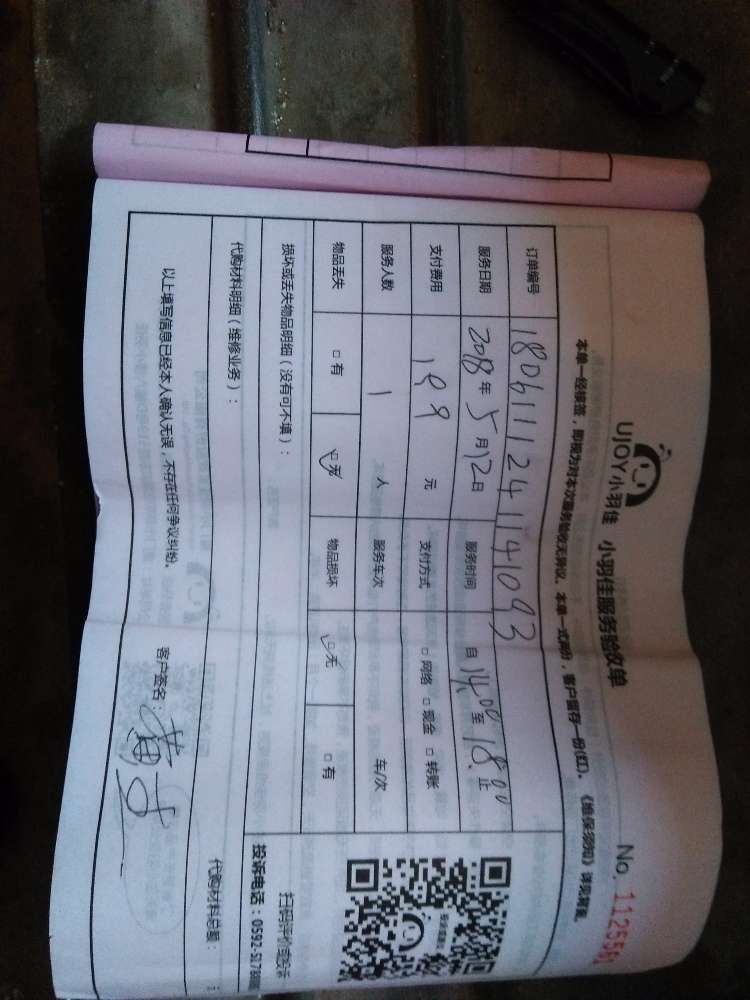 UJOY小羽佳 小羽佳服务验收单 No. 1125561
本单一经接签，即视为对本次服务验收无异议。本单一式两份，客户留存一份(红)。《维保须知》详见背面。
订单编号 1806111241141093
服务日期 2018年5月12日 服务时间 自14:00至18:00止
支付费用 199元 支付方式 □网络 □现金 □转账
服务人数 1人 服务车次 车/次
物品丢失 □有 □无 物品损坏 □无 □有
损坏或丢失物品明细（没有可不填）：
代购材料明细（维修业务）：
代购材料总额：
以上填写信息已经本人确认无误，不存在任何争议纠纷。
客户签名：
扫码评价或投诉
投诉电话：0592-5178